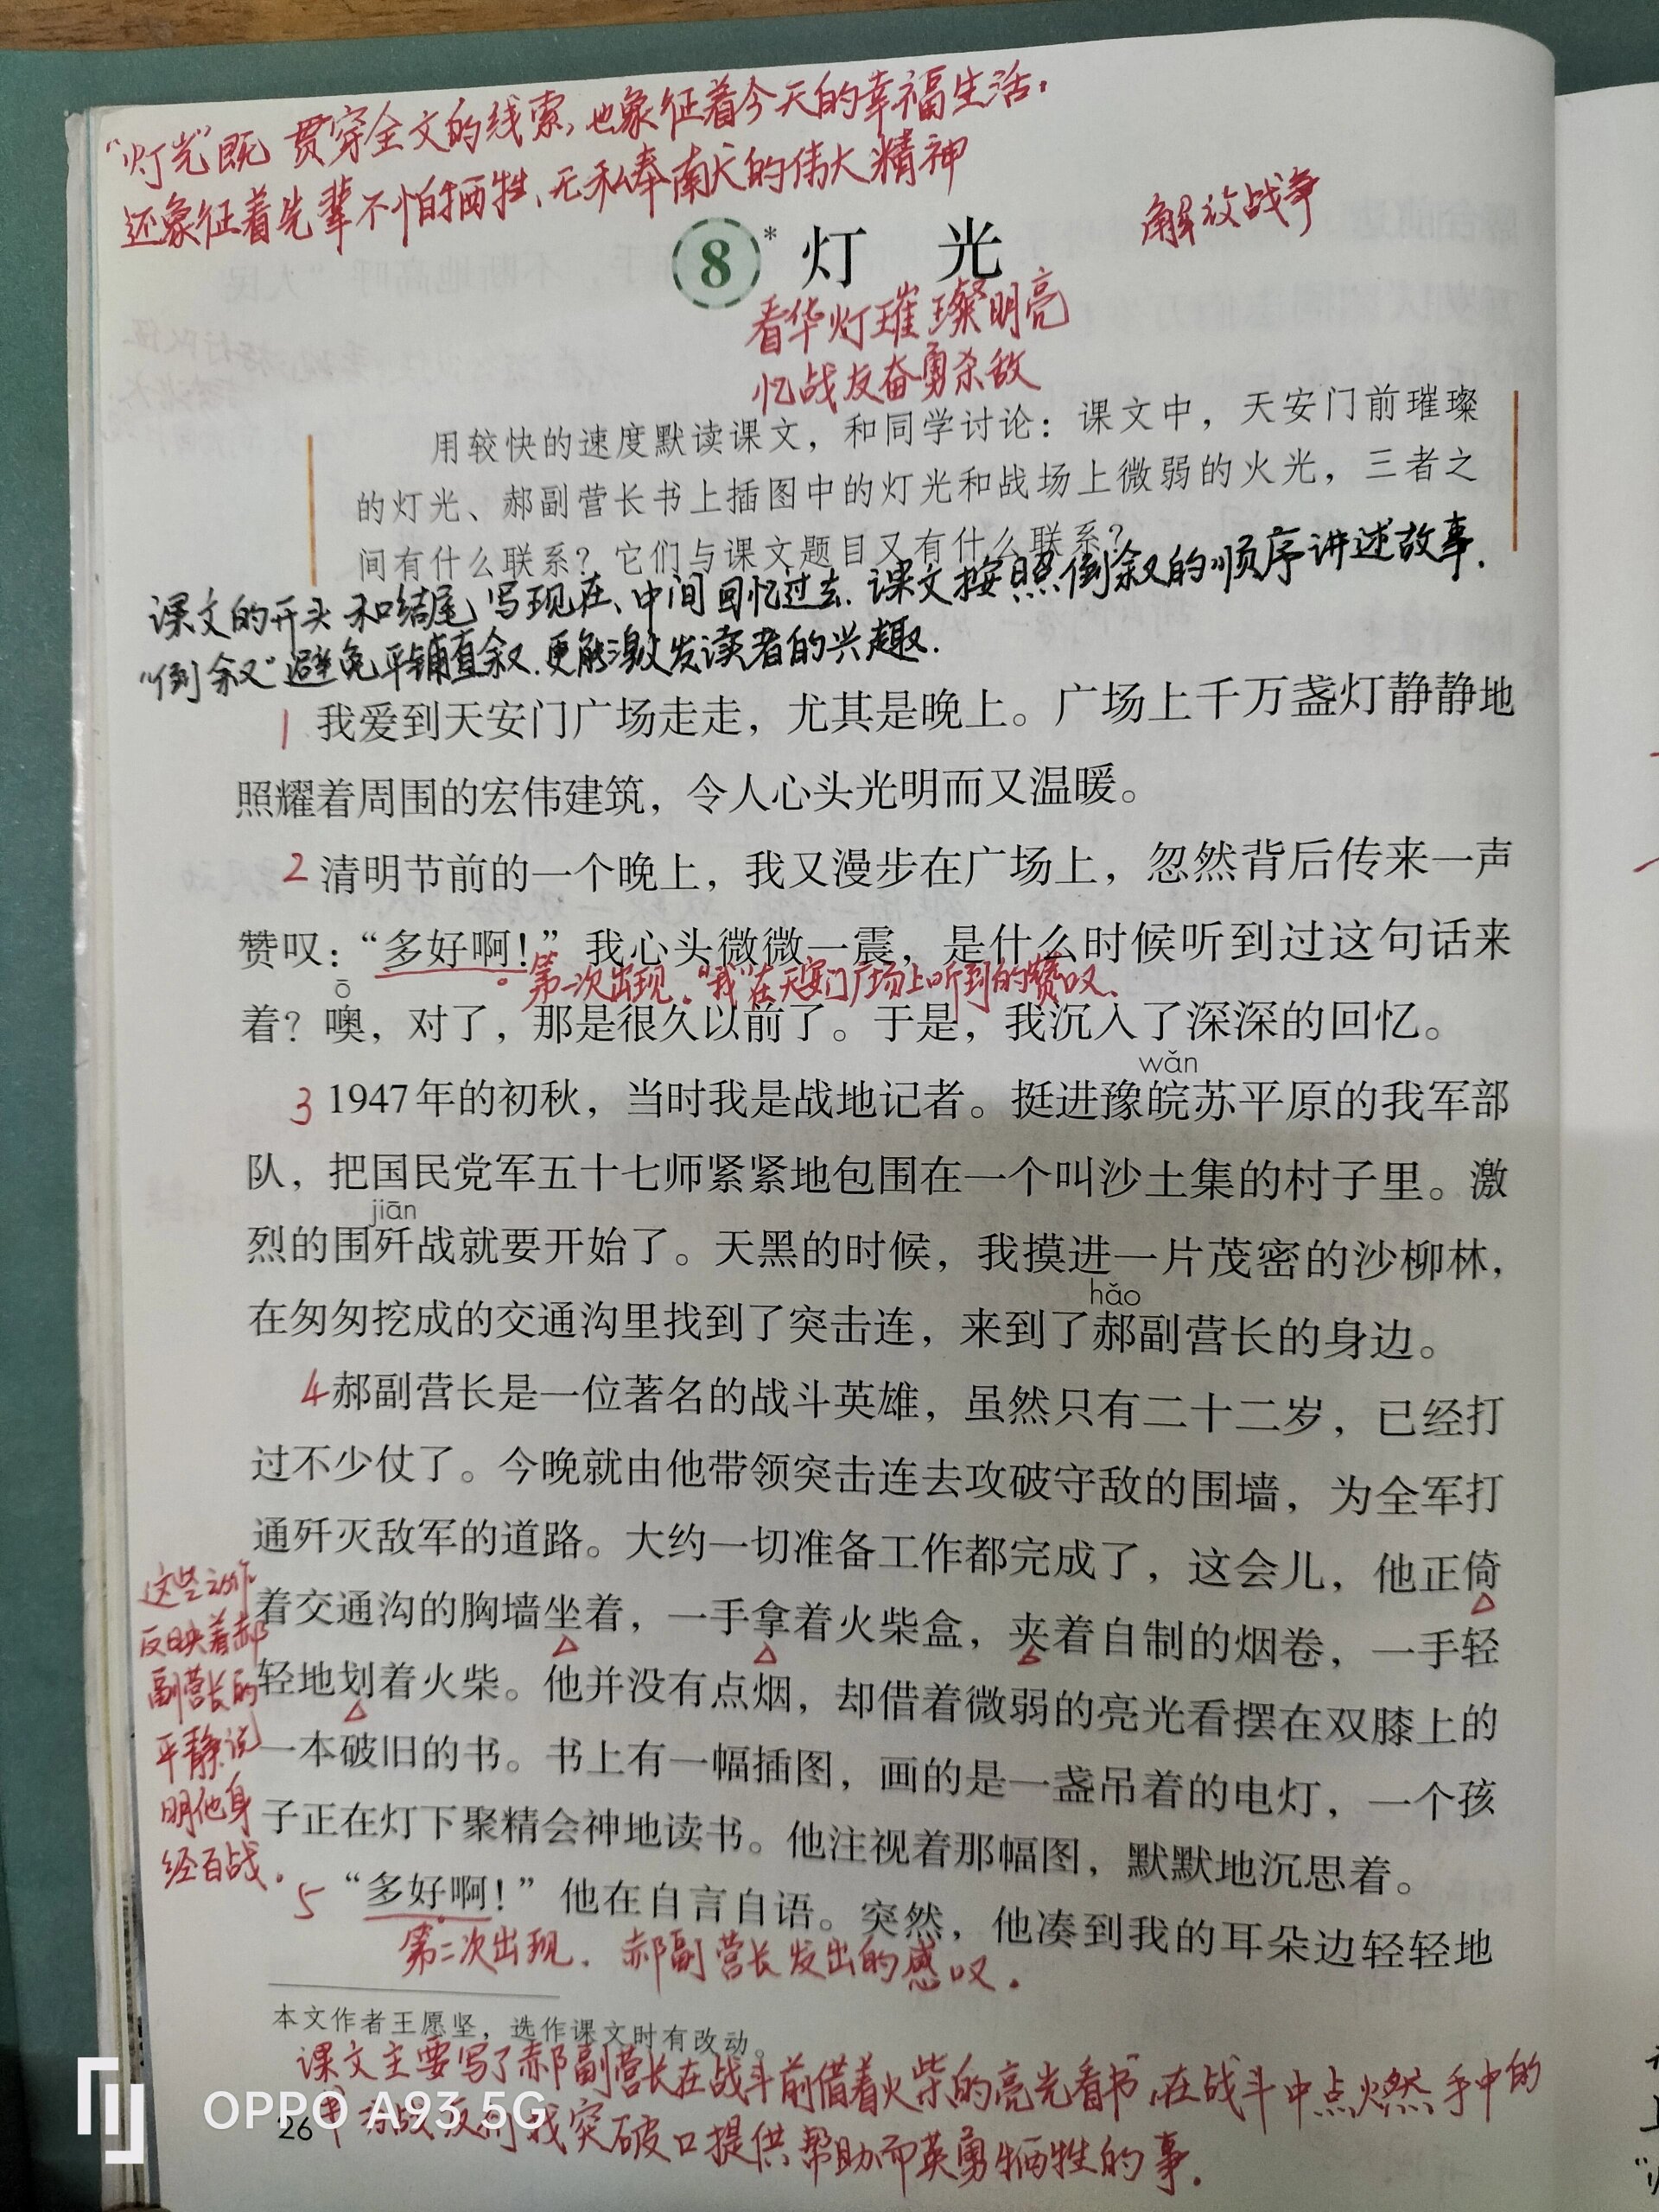 “灯光”既 贯穿全文的线索,也象征着今天的幸福生活,
还象征着先辈不怕牺牲、无私奉献的伟大精神
解放战争
8* 灯 光
看华灯璀璨明亮
忆战友奋勇杀敌
用较快的速度默读课文，和同学讨论：课文中，天安门前璀璨
的灯光、郝副营长书上插图中的灯光和战场上微弱的火光，三者之
间有什么联系？它们与课文题目又有什么联系？
课文的开头和结尾写现在、中间回忆过去.课文按照倒叙的顺序讲述故事.
“倒叙”避免平铺直叙.更能激发读者的兴趣.
1 我爱到天安门广场走走，尤其是晚上。广场上千万盏灯静静地
照耀着周围的宏伟建筑，令人心头光明而又温暖。
2 清明节前的一个晚上，我又漫步在广场上，忽然背后传来一声
赞叹：“多好啊！”我心头微微一震，是什么时候听到过这句话来
第一次出现.“我”在天安门广场上听到的赞叹.
ō
着？噢，对了，那是很久以前了。于是，我沉入了深深的回忆。
wǎn
3 1947年的初秋，当时我是战地记者。挺进豫皖苏平原的我军部
队，把国民党军五十七师紧紧地包围在一个叫沙土集的村子里。激
jiān
烈的围歼战就要开始了。天黑的时候，我摸进一片茂密的沙柳林，
hǎo
在匆匆挖成的交通沟里找到了突击连，来到了郝副营长的身边。
4 郝副营长是一位著名的战斗英雄，虽然只有二十二岁，已经打
过不少仗了。今晚就由他带领突击连去攻破守敌的围墙，为全军打
通歼灭敌军的道路。大约一切准备工作都完成了，这会儿，他正倚
着交通沟的胸墙坐着，一手拿着火柴盒，夹着自制的烟卷，一手轻
轻地划着火柴。他并没有点烟，却借着微弱的亮光看摆在双膝上的
一本破旧的书。书上有一幅插图，画的是一盏吊着的电灯，一个孩
子正在灯下聚精会神地读书。他注视着那幅图，默默地沉思着。
这些动作
反映着郝
副营长的
平静说
明他身
经百战.
5 “多好啊！”他在自言自语。突然，他凑到我的耳朵边轻轻地
第二次出现. 郝副营长发出的感叹.
本文作者王愿坚，选作课文时有改动。
课文主要写了郝副营长在战斗前借着火柴的亮光看书,在战斗中点燃手中的
书 战友们找突破口提供帮助而英勇牺牲的事.
26
OPPO A93 5G